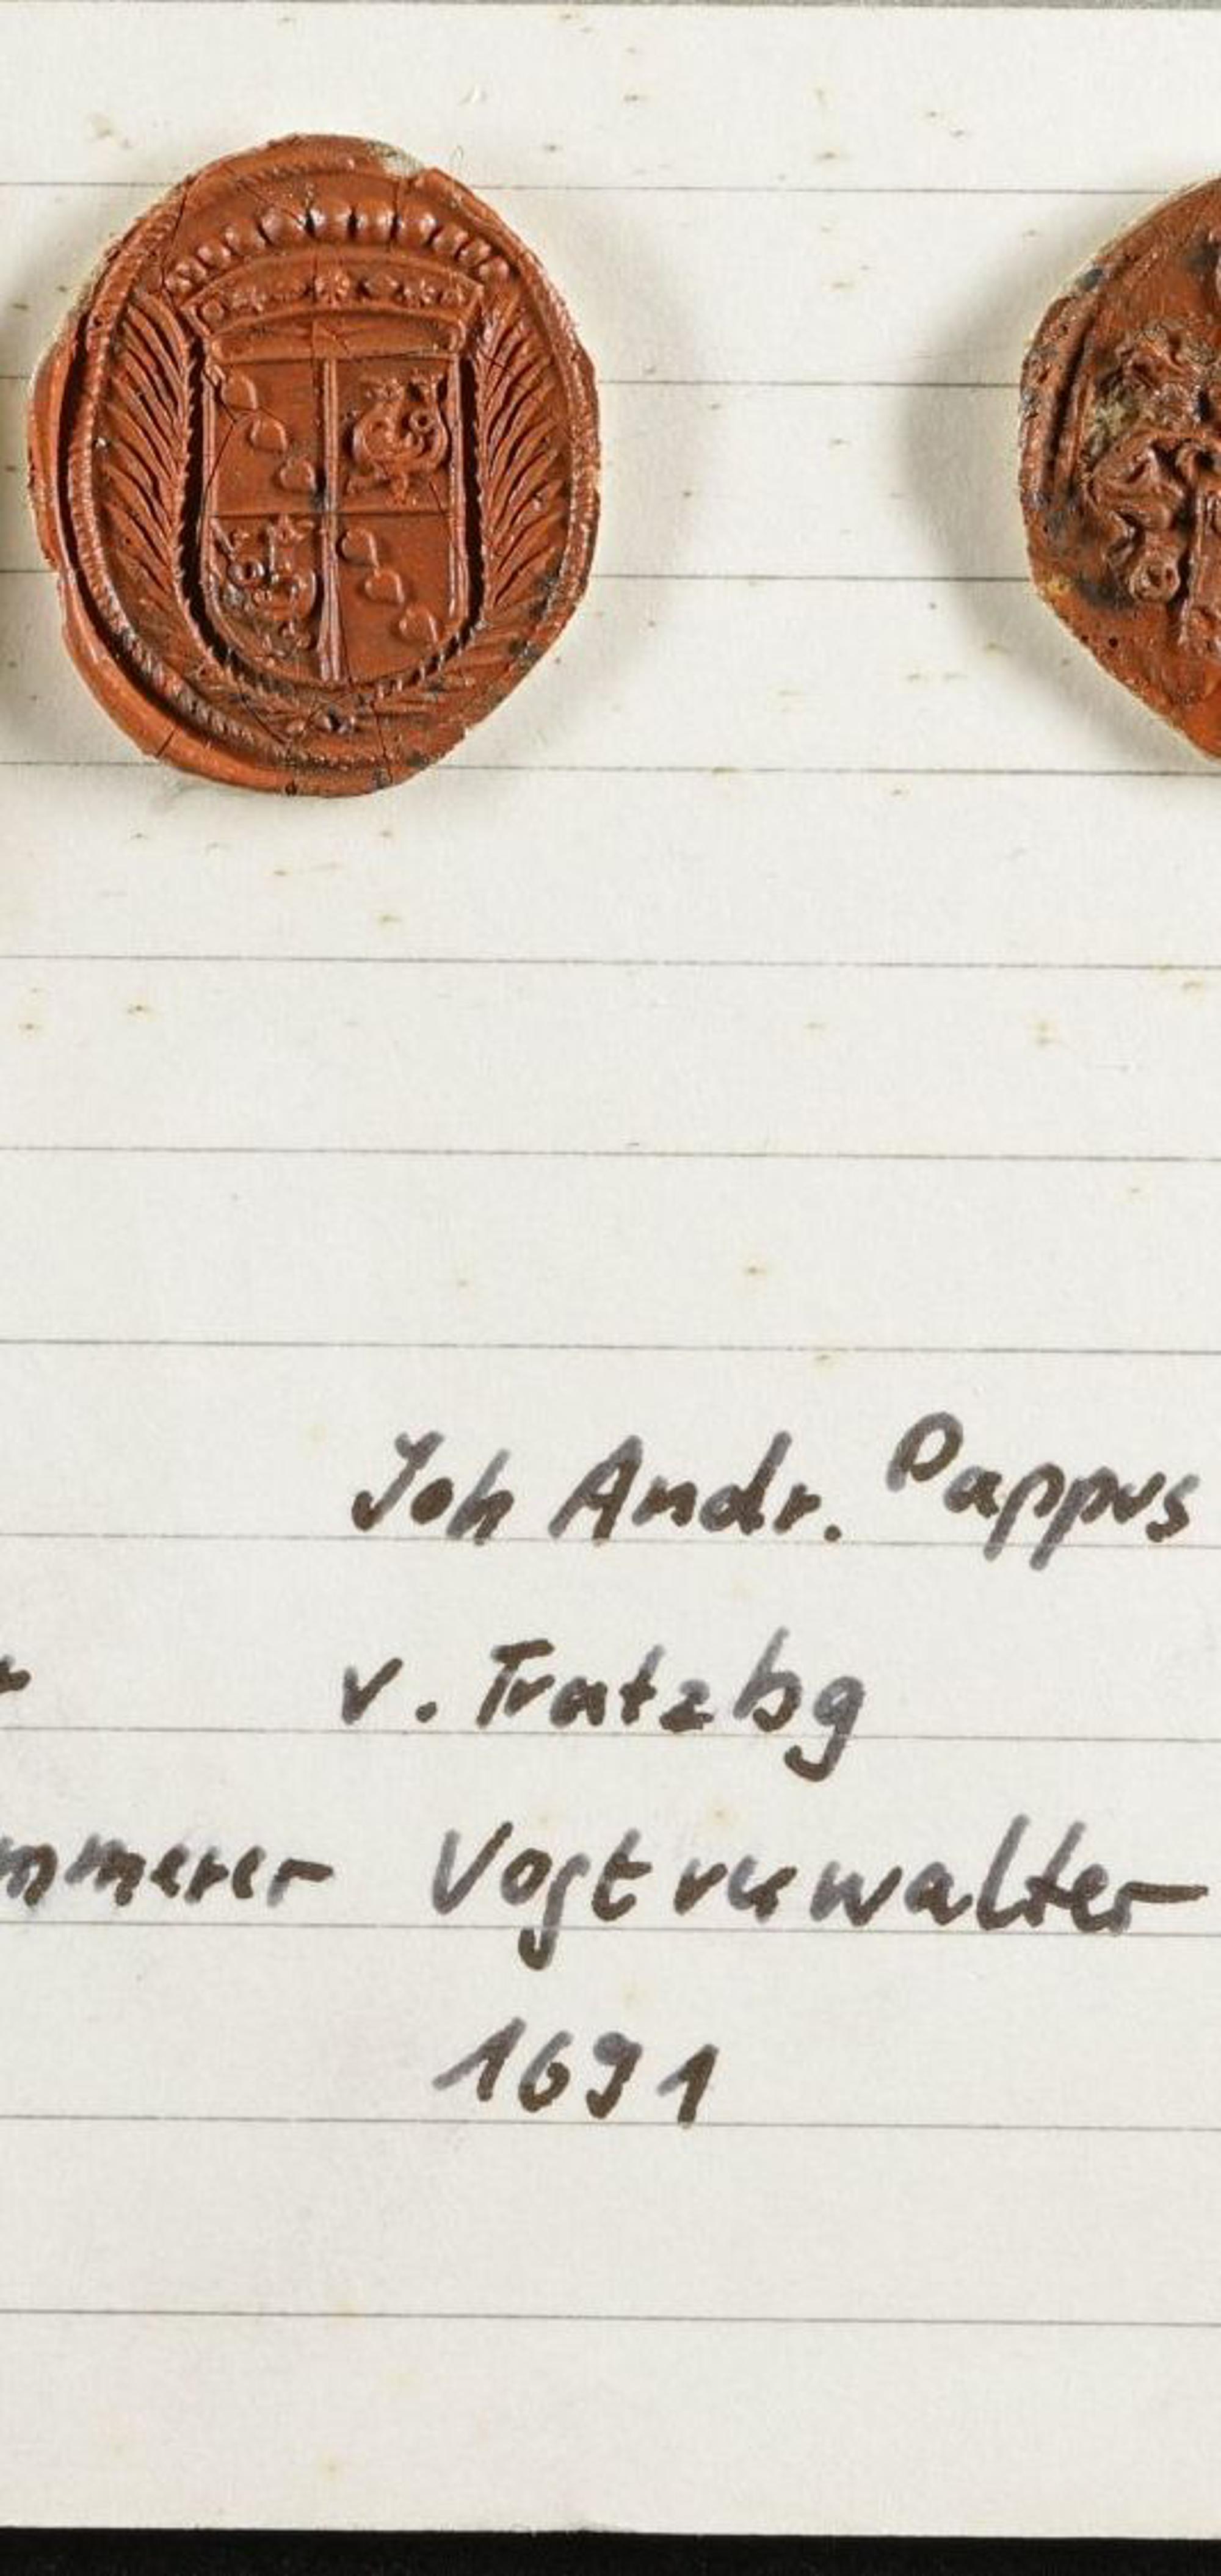 Joh Andr. Pappus
v. Tratzbg
mmerer Vogtverwalter
1691